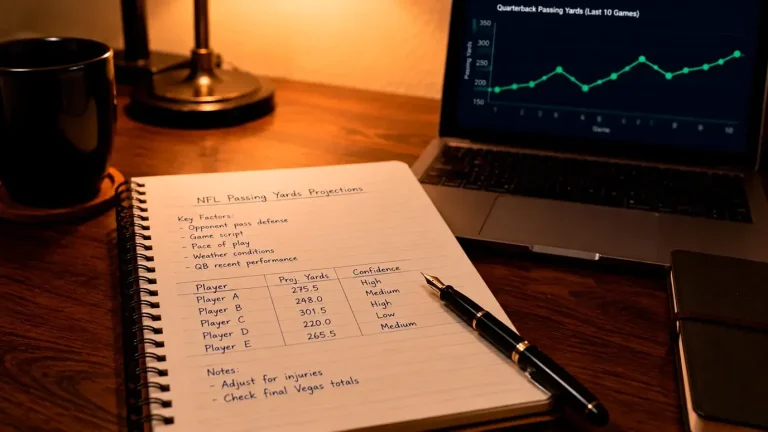 Quarterback Passing Yards (Last 10 Games)
Passing Yards
350
300
1
10
NFL Passing Yards Projections
Key Factors:
- Opponent pass defense
- Game script
- Pace of play
- Weather conditions
- QB recent performance
Player Proj. Yards Confidence
Player A 275.5 High
Player B 248.0 Medium
Player C 301.5 High
Player D 220.0 Low
Player E 265.5 Medium
Notes:
- Adjust for injuries
- Check final Vegas totals